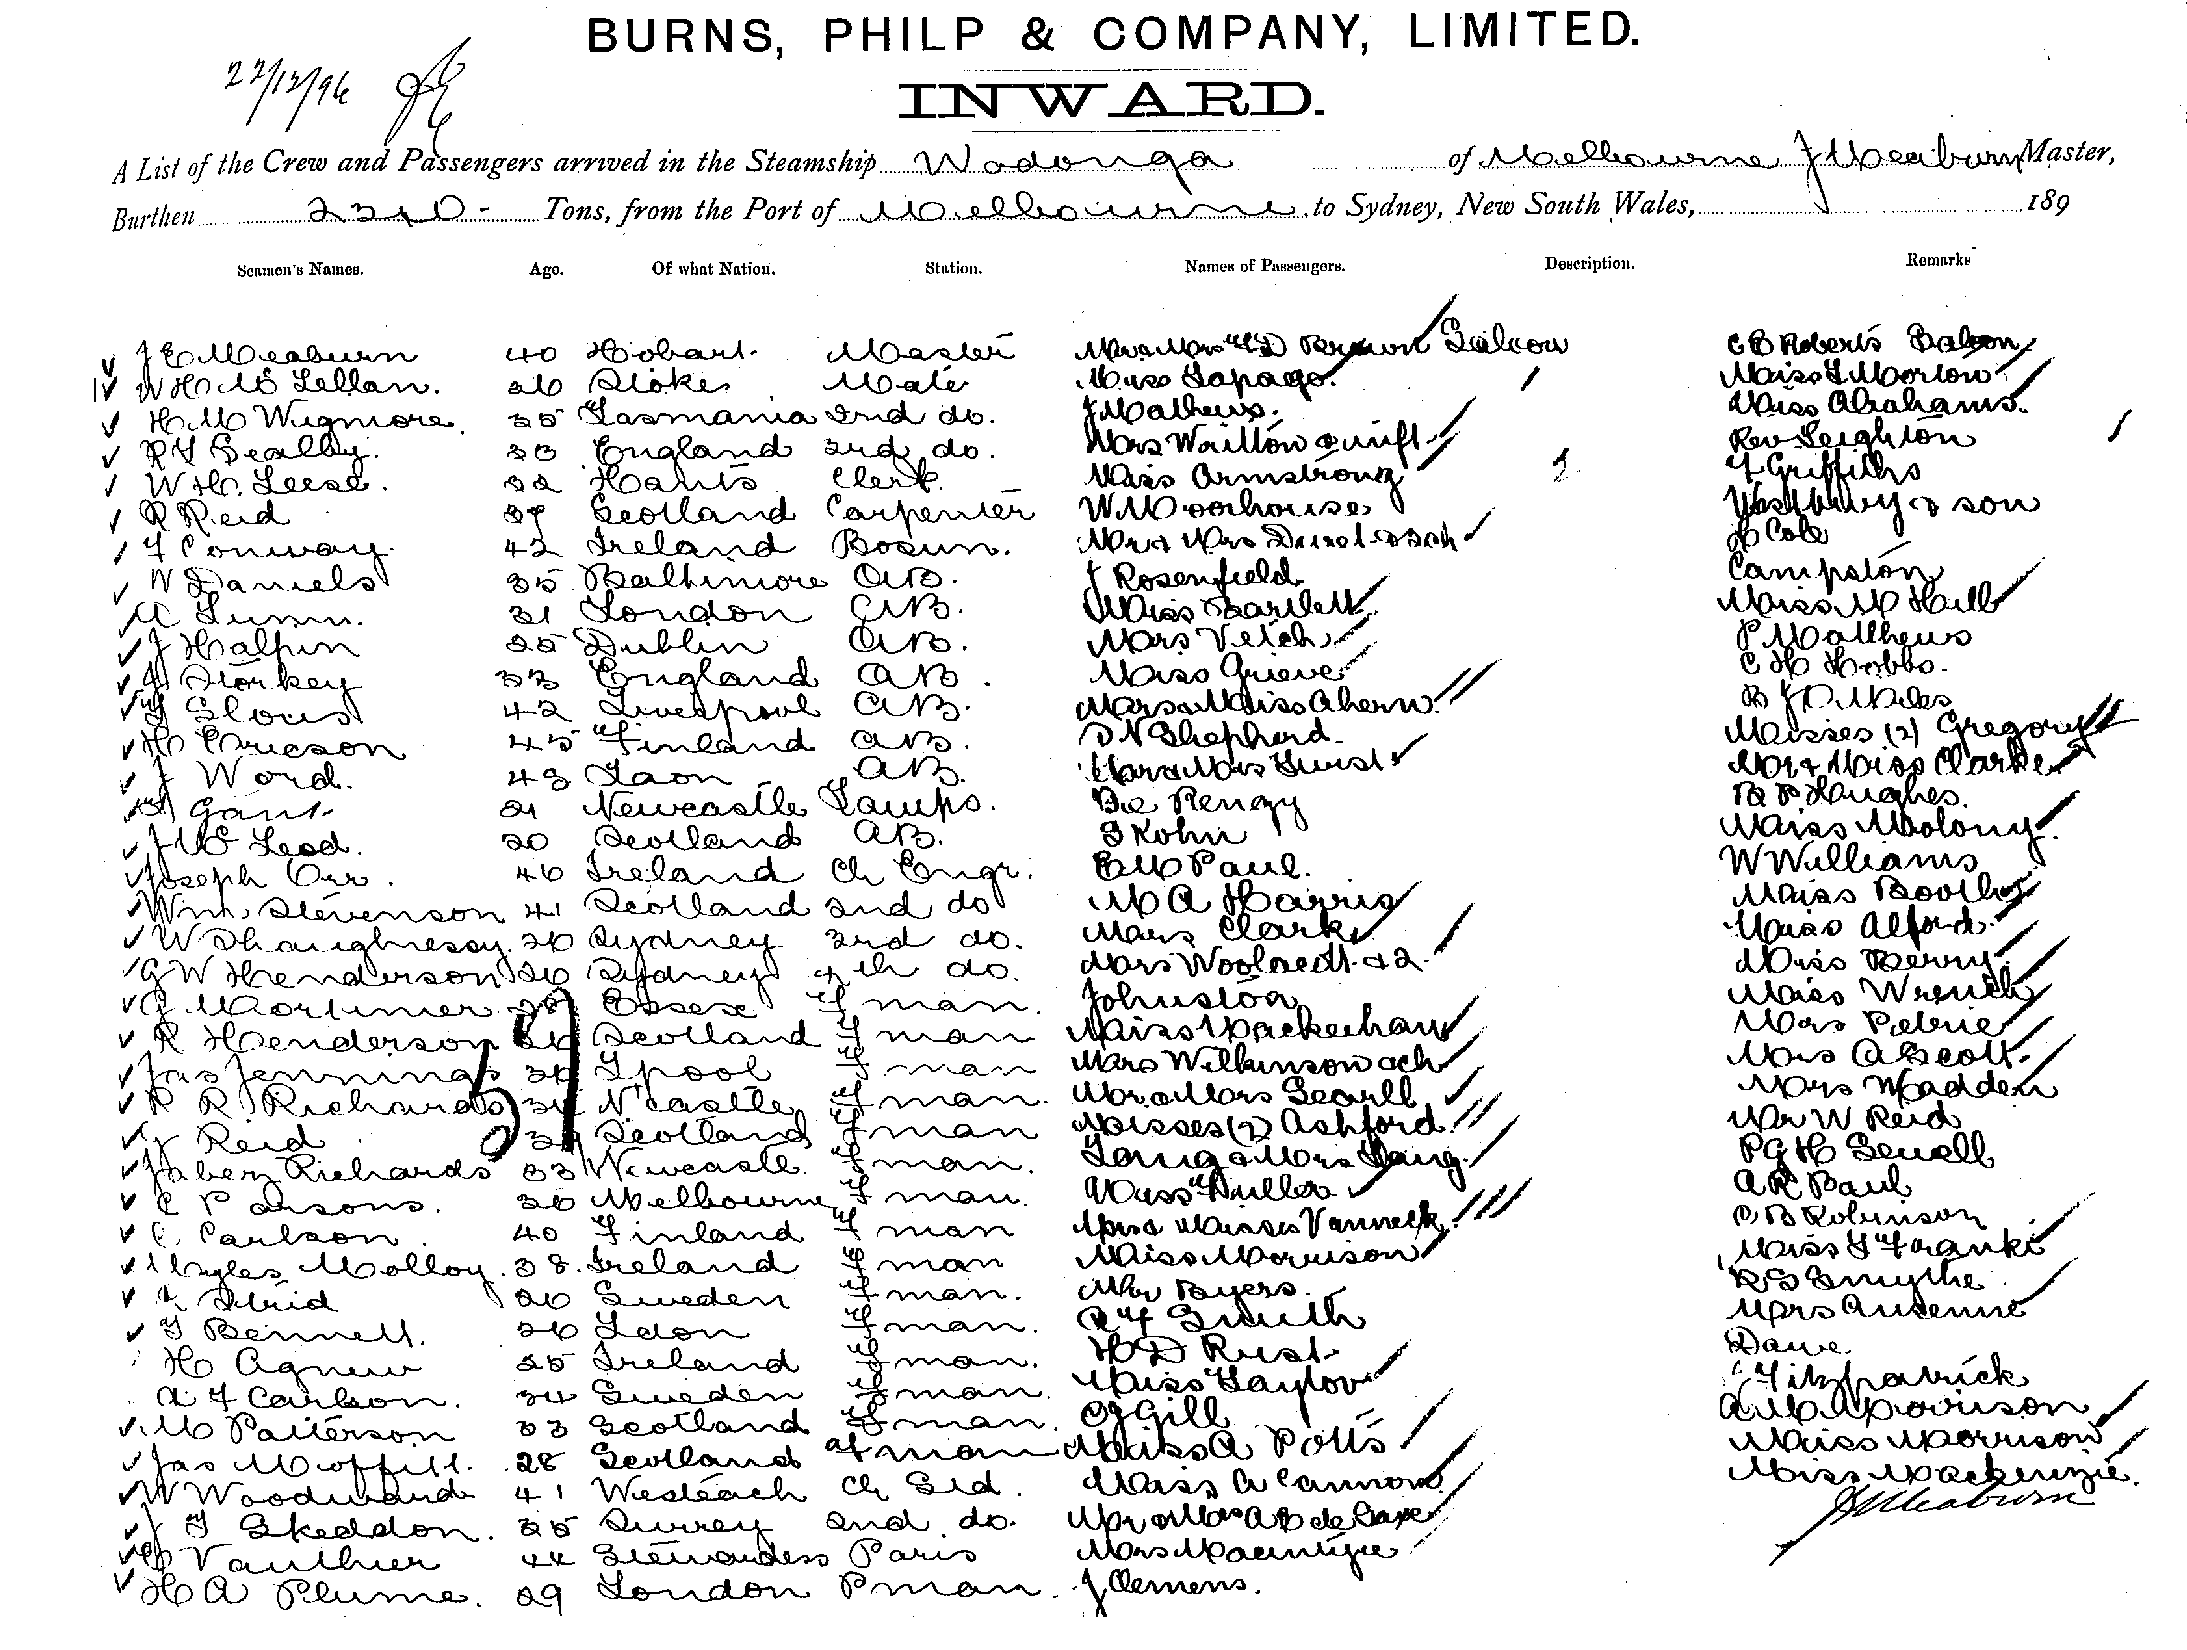 BURNS, PHILP & COMPANY, LIMITED.
22/12/96
INWARD.
A List of the Crew and Passengers arrived in the Steamship Wodonga of Melbourne J Meaburn Master,
Burthen 2310 - Tons, from the Port of Melbourne to Sydney, New South Wales, 189
Seamen's Names. Age. Of what Nation. Station. Names of Passengers. Description. Remarks
J E Meaburn 40 Hobart. Master Mr & Mrs Saloon C E Roberts Saloon
W H Mc Lellan. 26 Stokes Mate Miss Sapago. Miss L Morton
H M Wigmore. 35 Tasmania 2nd do. J Mathews. Miss Abrahams.
R Y Sealby. 33 England 3rd do. Mrs & inft. Rev Leighton
W H. Leese. 32 Hants Clerk. Miss Armstrong F Griffiths
R Reid 37 Scotland Carpenter W Moorhouse Westbury & son
F Conway. 42 Ireland Bosun. Mr & Mrs H Cole
W Daniels 35 Baltimore AB. J Rosenfield Campston
A Lunn. 31 London AB. Miss Bartlett Miss M Hill
J Halpin 25 Dublin AB. Mrs Vetch P Matthews
Storkey 33 England AB. Miss Grieve C H Hobbs.
42 Liverpool AB. Mrs & Miss Ahern. B J O Miles
H Ericson 45 Finland AB. D N Shepherd. Misses (2) Gregory
J Word. 43 Laon AB. Mr & Mrs Mr & Miss Clarke
Gant. 21 Newcastle Lamps. De Renzy R P Hughes.
J Mc Leod. 20 Scotland AB. S Kohn Miss Molony.
Joseph Orr. 46 Ireland Ch Engr. E W Paul. W Williams
Wm Stevenson 41 Scotland 2nd do M A Harris Miss Boothy
W Shaughnessy. 26 Sydney 3rd do. Mrs Clark Miss Alford.
G W Henderson 26 Sydney 4th do. Mrs & 2. Miss Berry.
G Mortimer Essex F man. Johnston Miss Wrench
R Henderson Scotland F man Miss Mackechan Mrs Petrie
Jas Jennings L'pool F man Mrs Wilkinson & ch Mrs A Scott.
R R Richards N'castle F man. Mr & Mrs Searll Mrs Madden
Reid Scotland F man Misses (2) Ashford. Mr W Reid
Jabez Richards 33 Newcastle. F man. Lang & Mrs Lang. P G H Sewell
C Parsons. 36 Melbourne F man. Miss Fuller A R Paul
C Carlson. 40 Finland F man Mrs & Misses Vanneck. O B Robinson
Myles Molloy. 38. Ireland F man Miss Morrison Miss Franki
Strid 26 Sweden F man. Mr Byers. R S Smythe
T Bennett. 26 Ldon F man. A F Smith Mrs
H Agnew 25 Ireland F man. H D Rust. Dane.
A F Carlson. 34 Sweden F man. Miss Taylor Fitzpatrick
M Patterson 33 Scotland F man. C J Gill A M Morrison
Jas Moffitt. 28 Scotland F man Miss A Potts Miss Morrison
W Woodward 41 Westeach Ch Std. Miss A Cannon. Miss Mackenzie.
J T Skeddon. 35 Surrey 2nd do. Mr & Mrs A B de Saxe J E Meaburn
Vauthier 44 Stewardess Paris Mrs Macintyre
H A Plume. 29 London P man. J Clemens.
59